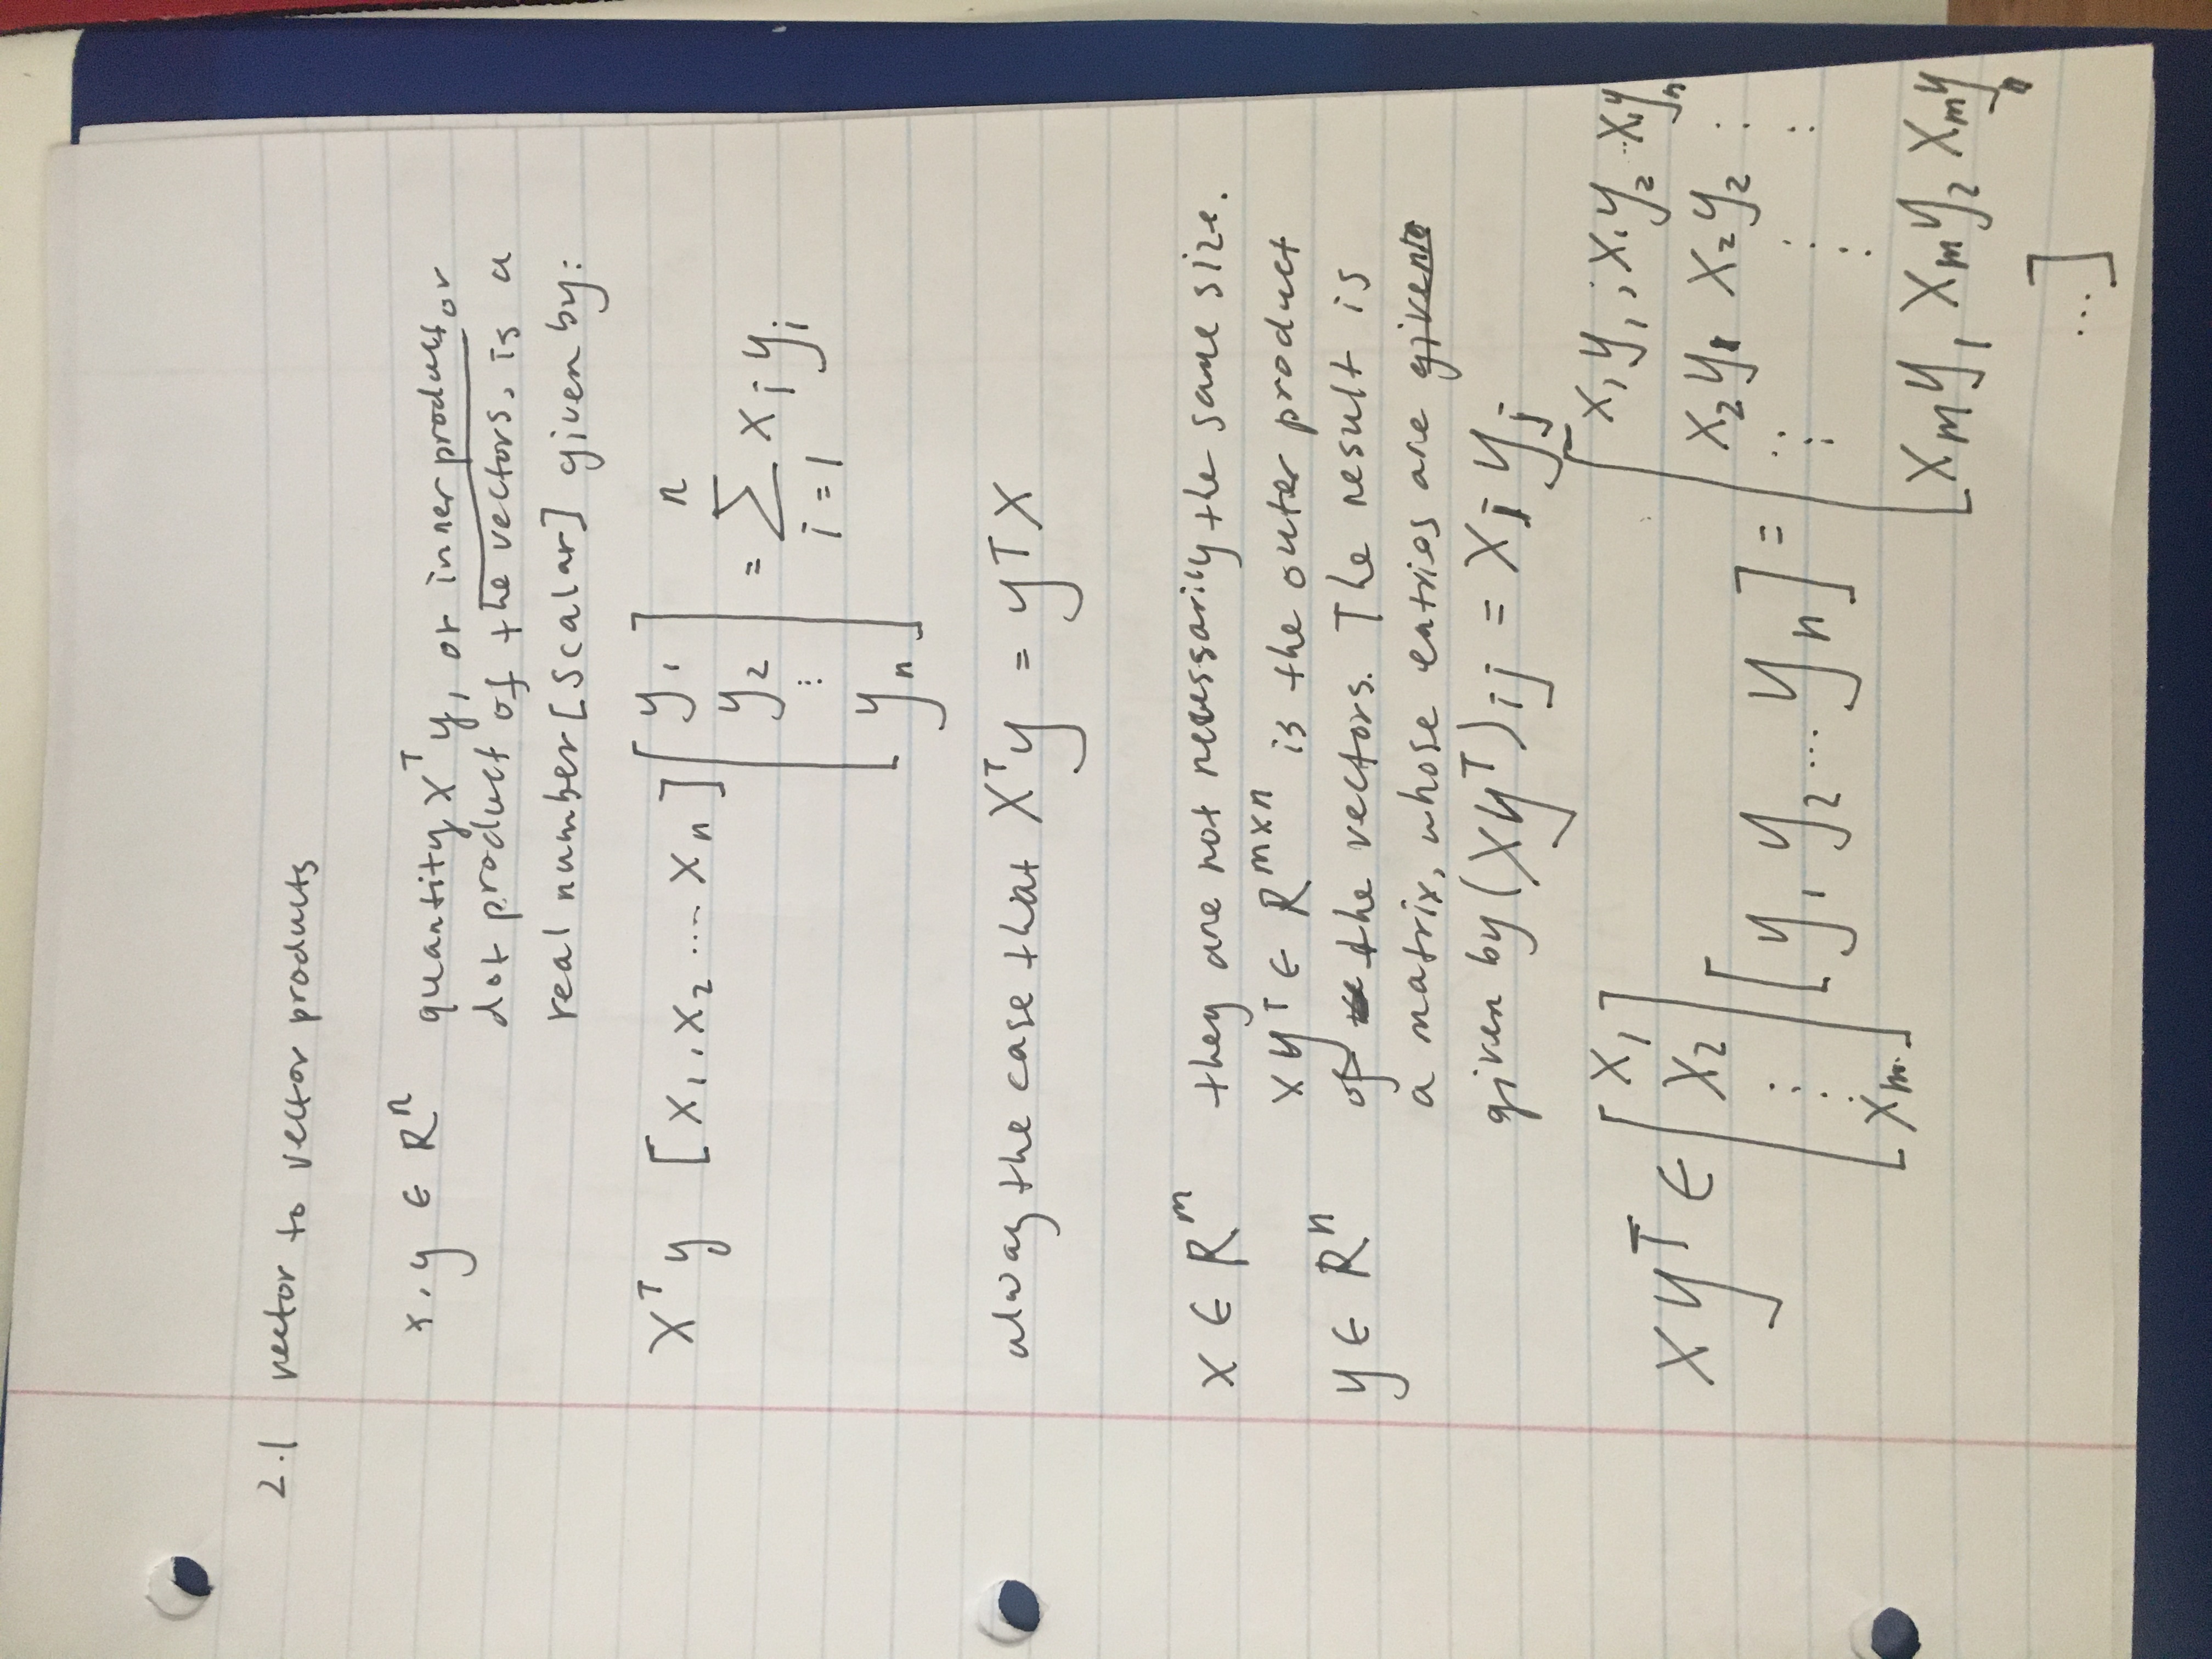 2.1 vector to vector products
x, y ∈ Rⁿ quantity xᵀy, or inner product or
dot product of the vectors, is a
real number [scalar] given by:
xᵀy [x₁, x₂ .... xₙ] [y₁ y₂ ⋮ yₙ] = ∑ⁿᵢ₌₁ xᵢ yᵢ
alway the case that xᵀy = yᵀx
x ∈ Rᵐ they are not necessarily the same size.
xyᵀ ∈ Rᵐˣⁿ is the outer product
y ∈ Rⁿ of the vectors. The result is
a matrix, whose entries are
given by (xyᵀ)ij = xᵢ yⱼ
xyᵀ ∈ [x₁ x₂ ⋮ xₘ] [y₁ y₂ ... yₙ] = [x₁y₁, x₁y₂ .. x₁yₙ
x₂y₁ x₂y₂ ⋮
⋮ ⋮ ⋮
xₘy₁ xₘy₂ xₘyₙ
...]